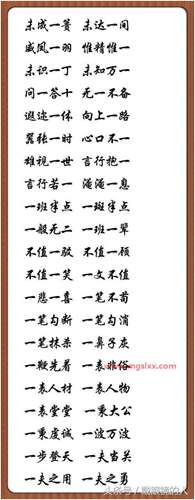 未成一篑 未达一间
威凤一羽 惟精惟一
未识一丁 未知万一
问一答十 无一不备
遐迩一体 向上一路
嚣张一时 心口不一
雄视一世 言行抱一
言行若一 淹淹一息
一班半点 一斑半点
一般无二 一班一辈
不值一驳 不值一顾
不值一笑 一文不值
一悲一喜 一笔不苟
一笔勾断 一笔勾消
一笔抹杀 一鼻子灰
一鞭先着 一表非俗
一表人材 一表人物
一表堂堂 一秉大公
一秉虔诚 一波万波
一步登天 一夫当关
一夫之用 一夫之勇
头条号